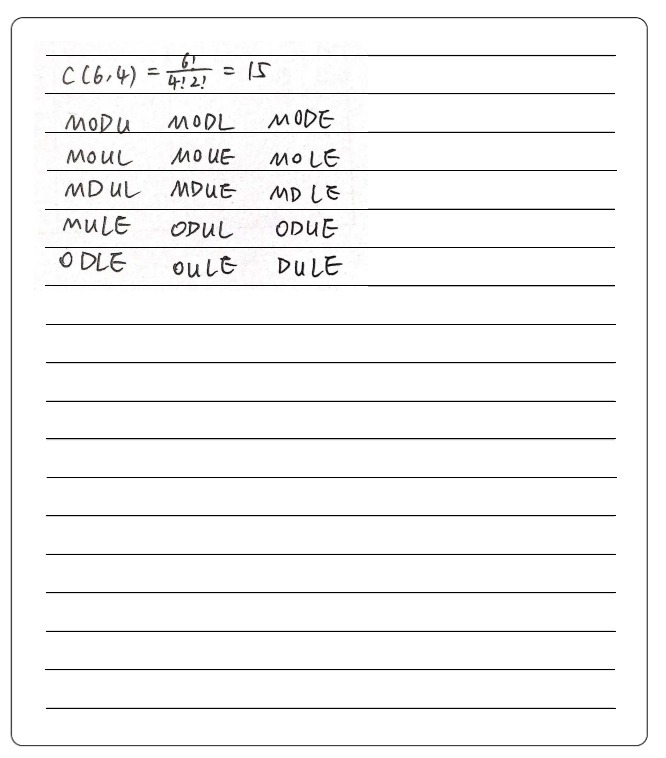 C(6,4) = 6!/4!2! = 15
MODU MODL MODE
MOUL MOUE MOLE
MDUL MDUE MDLE
MULE ODUL ODUE
ODLE OULE DULE